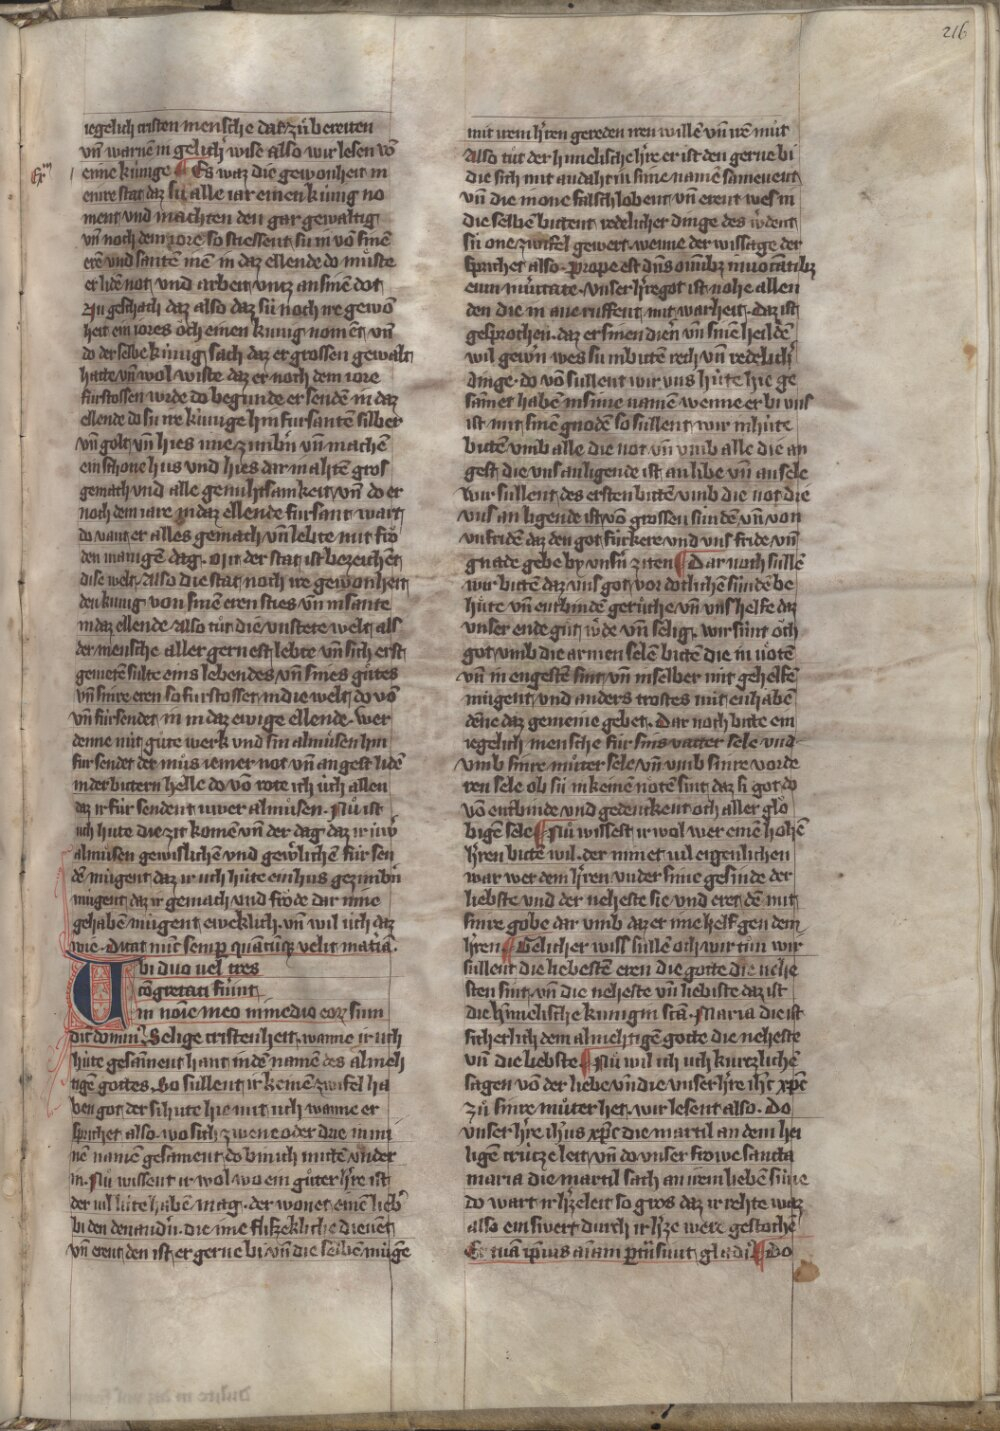 216
iegelich cristen mensche daz zů bereiten
vn̄ warnēm gelich wise also wir lesen vō
eime künige ¶ Es waz die gewonheit in
einre stat daz sü alle iar einen künig no
ment vnd machten den gar gewaltig
vn̄ noch dem iore so stiessent sü in vō sinē
erē vnd santēn inen in daz ellende do muste
er liden not vnd arbeit vntz an sinē dot
Zů geschach daz also daz sü noch ire gewō
heit ein iores och einen künig nomēt vn̄
do der selbe künig sach daz er grossen gewalt
hatte vn̄ wol wiste daz er noch dem iore
fürstossen würde do begunde er senden in daz
ellende do sü ire künige hin fürsantē silber
vn̄ golt vn̄ hies ime zimbn̄ vn̄ machē
ein schone hus vnd hies dar in ahtē gros
gemach vnd alle genuhtsamkeit vn̄ do er
noch dem iare in daz ellende fürsant wart
do vant er alles gemach vn̄ lebite mit frō
den manigē dag. Mit der stat ist bezeichēt
dise welt, Also die stat noch ire gewonheit
den künig von sinē eren sties vn̄ in sante
in daz ellende Also tůt die vnstete welt als
der mensche aller gernest lebte vn̄ sich erst
gnietē sülte eins lebendes vn̄ sines gůtes
vn̄ sinre eren so fürstosset in die welt do vō
vn̄ fürsendet in in daz ewige ellende. wer
denne nüt gůte werk vnd sin almůsen hin
für sendet der můs iemer not vn̄ angest lidē
in der bittern helle do vō rote ich üch allen
daz ir für sendent uwer almůsen. Nů ist
üch hüte die zit komē vn̄ der dag daz ir üwr̄
almůsen gewislichē vnd gewerlichē für sen
dē mügent daz ir uch hüte ein hus gezimbn̄
mügent daz ir gemach vnd fröde dar inne
gehabē mügent eweklich vn̄ wil üch daz
wie. Ducat nūc semp̄ quācūq; velit matia.
Ubi duo uel tres
cōgregati fūint
in noīe meo in medio eoꝝ sum
dicit domin9. Selige cristenheit, wanne ir uch
hüte gesament hant in dē namē des almeh
tigē gottes. So sullent ir keinē zwifel ha
ben got der si hute hie mit uch wanne er
sprichet also. wo sich zwene oder drie in mi
nē namē gesament do bin ich mittē vnder
in. Nů wissent ir wol wo ein gůter hr̄re ist
der uil lüte haben mag. der wonet eime lieb
bi den denandn̄. die ime flisseklichē dienēt
vn̄ erent den ist er gerne bi vn̄ die selbē můgē
mit irem hr̄ren gereden iren willē vn̄ irē můt
Also tůt der himelische hr̄re er ist den gerne bi
die sich mit andaht in sime namē samenent
vn̄ die in one falsch lobent vn̄ erent wes in
die selbē bittent redelicher dinge des wdent
sü one zwifel gewert wenne der wissage der
sprichet also. Prope est dn̄s om̄ibꝫ inuocātibꝫ
eum in ueritate. vnser hr̄re got ist nohe allen
den die in ane ruffent mit warheit. daz ist
gesprochen. daz er sinen dien̄ vn̄ sinē heildē
wil gewn̄ wes sü in bittē recht vn̄ redelich
dinge. do vō sullent wir vns hüte hie ge
samet habē in sime namē wenne er bi vns
ist mit sinē gnodē so sullent wir in hüte
bittē vmb alle die not vn̄ vmb alle die an
gest die vns anligende ist an libe vn̄ an sele
wir sullent des ersten bittē vmb die not die
vns an ligende ist vō grossen sündē vn̄ von
vnfridē daz den got fürkere vnd vns fride vn̄
gnade gebe by vnsn̄ ziten ¶ Dar noch sullē
wir bittē daz vns got vor dotlichen sünden be
hüte vn̄ enthindē gerůche vn̄ vns helfe daz
vnser ende gůt wde vn̄ selig. wir sünt och
got vmb die armen selē bittē die in nōtē
vn̄ in engestē sint vn̄ in selber nit gehelfē
mügent vnd anders trostes nit enhabēn
dēne daz gemeine gebet. Dar noch bitte ein
iegelich mensche für sins vatter sele vnd
vmb sinre můter sele vn̄ vmb sinre vorde
ren sele ob sü in keinē nōten sint daz si got do
vō enthinde vnd gedenckent och aller glō
bigē sele ¶ Nů wissest ir wol wer einē hohē
hr̄ren bittē wil. der nimet uil eigenlichen
war wer dem hr̄ren vnder sime gesinde der
liebste vnd der neheste sie vnd eret dē mit
sinre gobe dar vmb daz er ime helf gen dem
hr̄ren ¶ Gelicher wiss sullē och wir tůn wir
sullent die liebestē eren die gotte die nehe
sten sint vn̄ die neheste vn̄ liebiste daz ist
die himelische künigin scā. Maria die ist
sicherlich dem almehtigē gotte die neheste
vn̄ die liebste ¶ Nů wil ich uch kurtzlichē
sagen vō der liebe vn̄ die vnser hr̄re ih̄c xp̄c
zů sinre můter het. wir lesent also. Do
vnser hr̄re ih̄us xp̄c die martil an dem hei
ligē crütze leit vn̄ do vnser frowe sancta
maria die martil sach an irem lieben süne
do wart ir hr̄zeleit so gros daz ir rehte waz
also ein swert durch ir hr̄ze were gestochē
Et tuā ip̄ius aīam ꝑtn̄siuit gladi9 ¶ Do